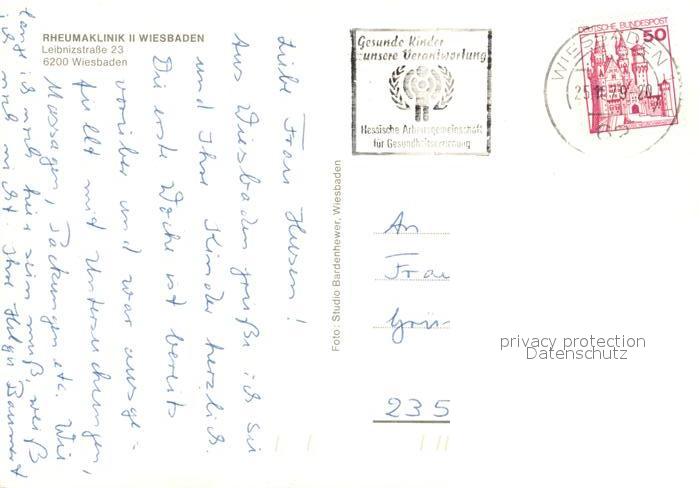 RHEUMAKLINIK II WIESBADEN
Leibnizstraße 23
6200 Wiesbaden
Liebe Frau Husen!
Aus Wiesbaden grüße ich Sie
und Ihre Kinder herzlich.
Die erste Woche ist bereits
vorüber und war ausge-
füllt mit Untersuchungen,
Massagen, Packungen etc. Wie
lange ich noch hier sein muß, weiß
ich noch nicht. Ihre Helga
Foto: Studio Bardenhewer, Wiesbaden
Gesunde Kinder
unsere Verantwortung
Hessische Arbeitsgemeinschaft
für Gesundheitserziehung
WIESBADEN
DEUTSCHE BUNDESPOST
50
An
Frau
Grün-
235
privacy protection
Datenschutz